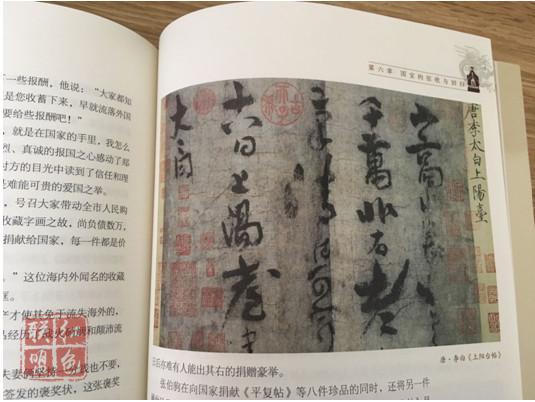 了一些报酬，他说：“大家都知
是您收蓄下来，早就流落外国
要给些报酬吧！”
，就是在国家的手里，我怎么
烈、真诚的报国之心感动了郑
对方的目光中读到了信任和理
是难能可贵的爱国之举。
，号召大家带动全市人民购
收藏字画之故，尚负债数万，
捐献给国家，每一件都是价
。”这位海内外闻名的收藏
产才使其免于流失海外的，
品经历了战火硝烟和颠沛流
夫妻俩坚持一分钱也不要，
签发的褒奖状，这张褒奖
第六章 国宝的
唐李太白上陽臺
山高水長
千萬非有老
清壯何可
十八日上陽臺書
太白
唐·李白《上阳台帖》
日后亦难有人能出其右的捐赠豪举。
张伯驹在向国家捐献《平复帖》等八件珍品的同时，还将另一件